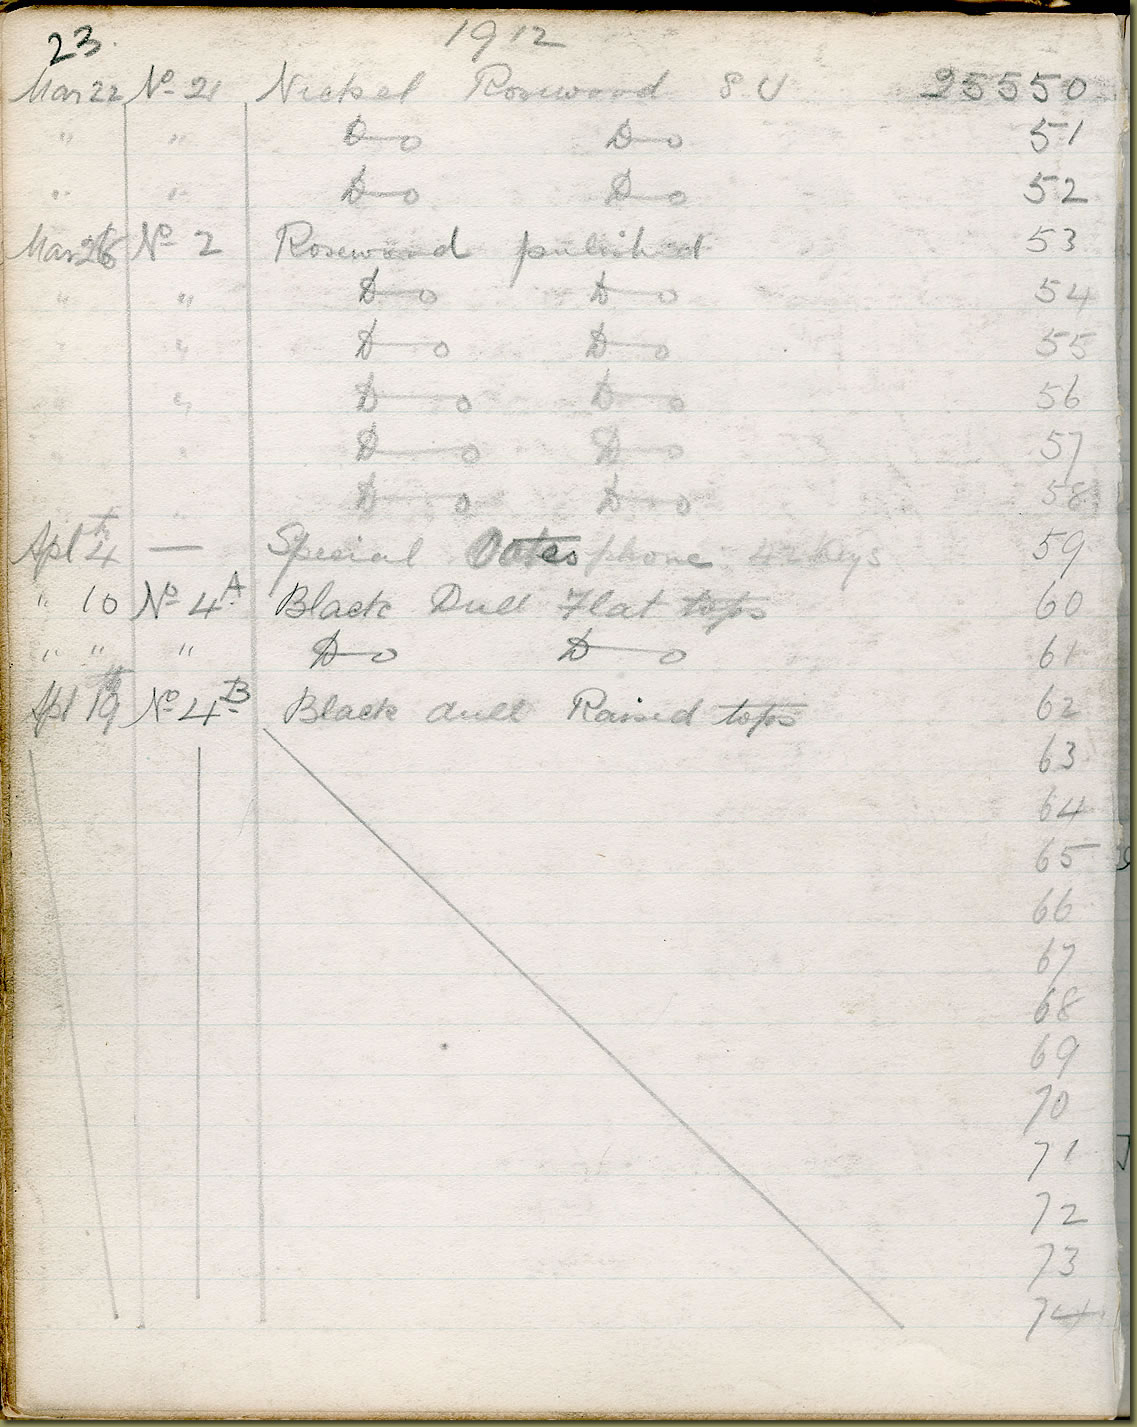 23. 1912
Mar 22 No 21 Nickel Rosewood 8 U 25550
" " Do Do 51
" " Do Do 52
Mar 26 No 2 Rosewood polished 53
" " Do Do 54
" " Do Do 55
" " Do Do 56
" " Do Do 57
" " Do Do 58
Apl 4th — Special phone 42 Keys 59
" 10 No 4A Black Dull Flat tops 60
" " " Do Do 61
Apl 19th No 4B Black dull Raised tops 62
63
64
65
66
67
68
69
70
71
72
73
74